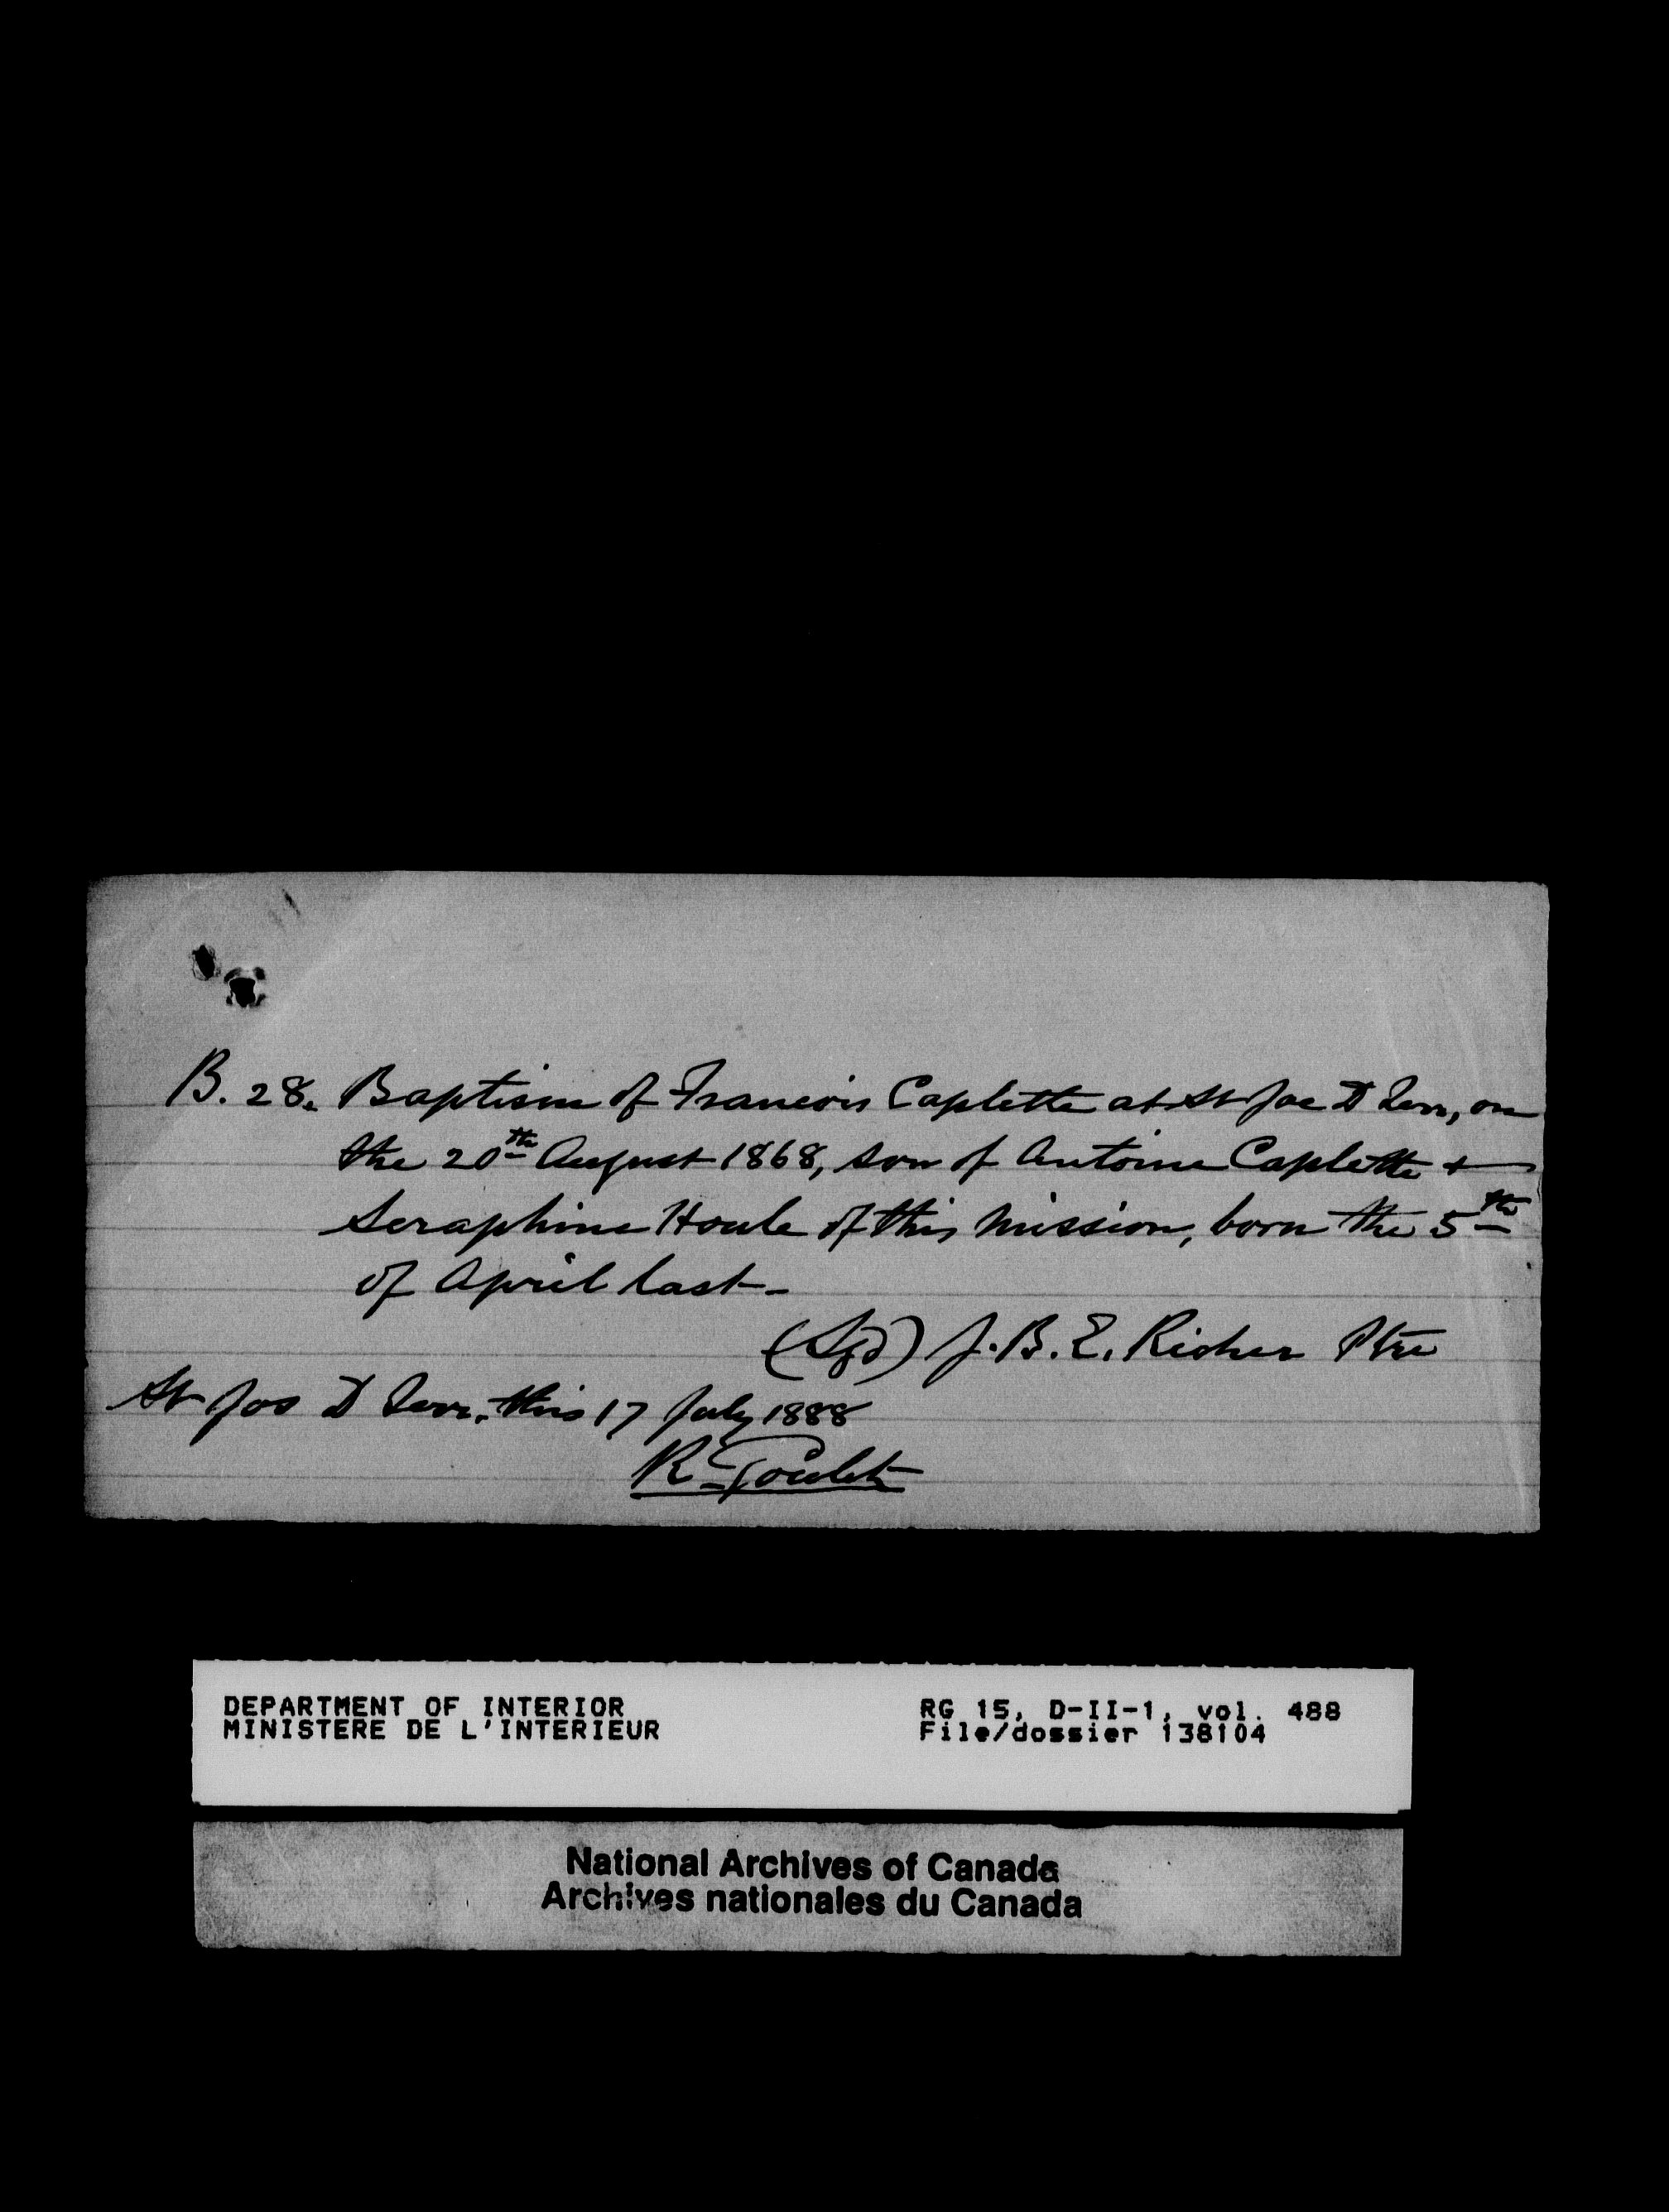 B. 28. Baptism of Francois Caplette at St Joe D Terr, on
the 20th August 1868, son of Antoine Caplette +
Seraphine Houle of this Mission, born the 5th
of April last -
(Sgd) J. B. E. Richer Ptre
St Jos D Terr. this 17 July 1888
R Goulet
DEPARTMENT OF INTERIOR
MINISTERE DE L'INTERIEUR
RG 15, D-II-1, vol. 488
File/dossier 138104
National Archives of Canada
Archives nationales du Canada